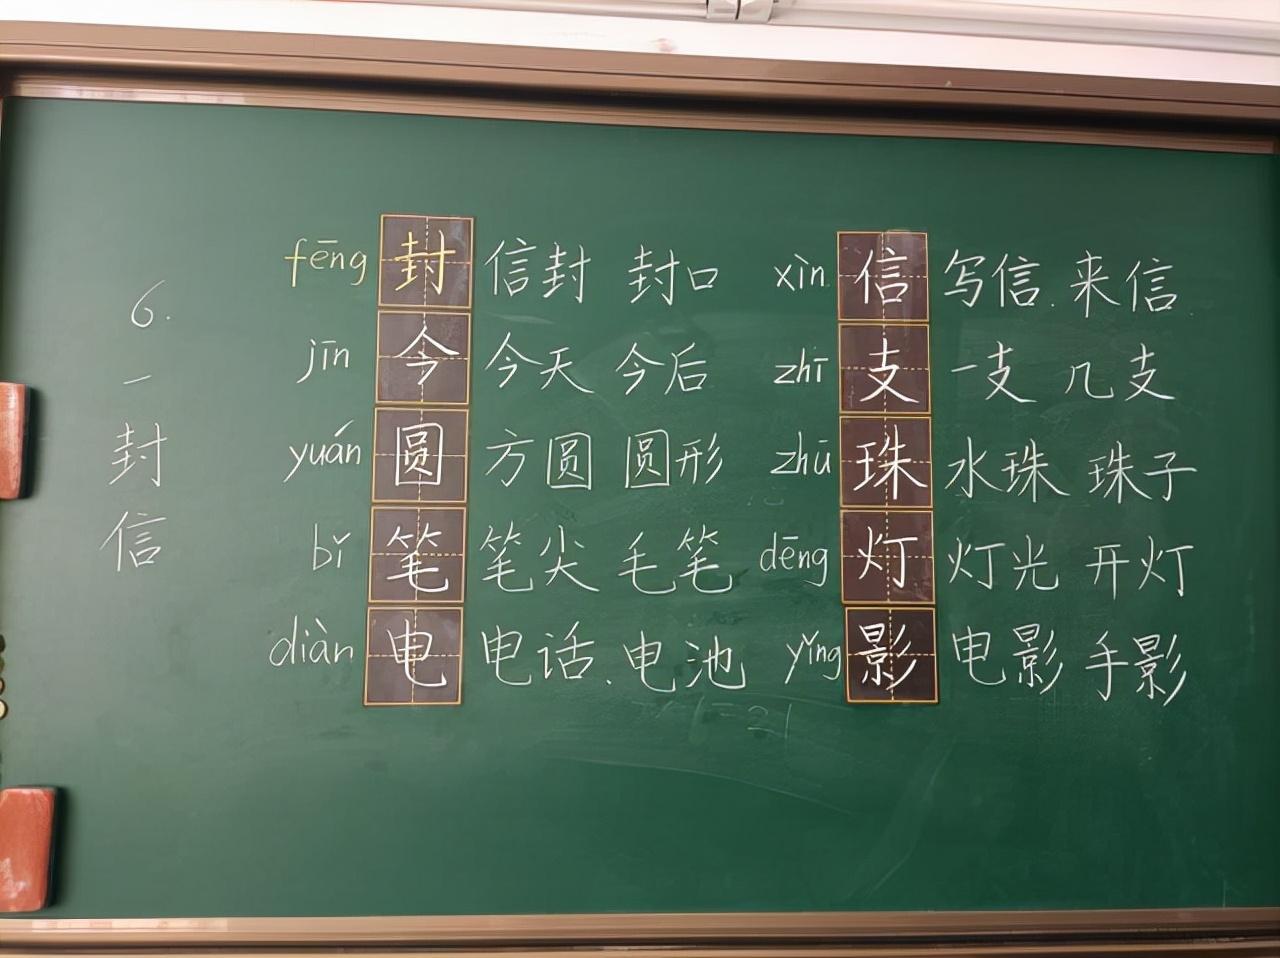 6.
一封信
fēng 封 信封 封口 xìn 信 写信. 来信.
jīn 今 今天 今后 zhī 支 一支 几支
yuán 圆 方圆 圆形 zhū 珠 水珠 珠子
bǐ 笔 笔尖 毛笔 dēng 灯 灯光 开灯
diàn 电 电话. 电池 yǐng 影 电影 手影